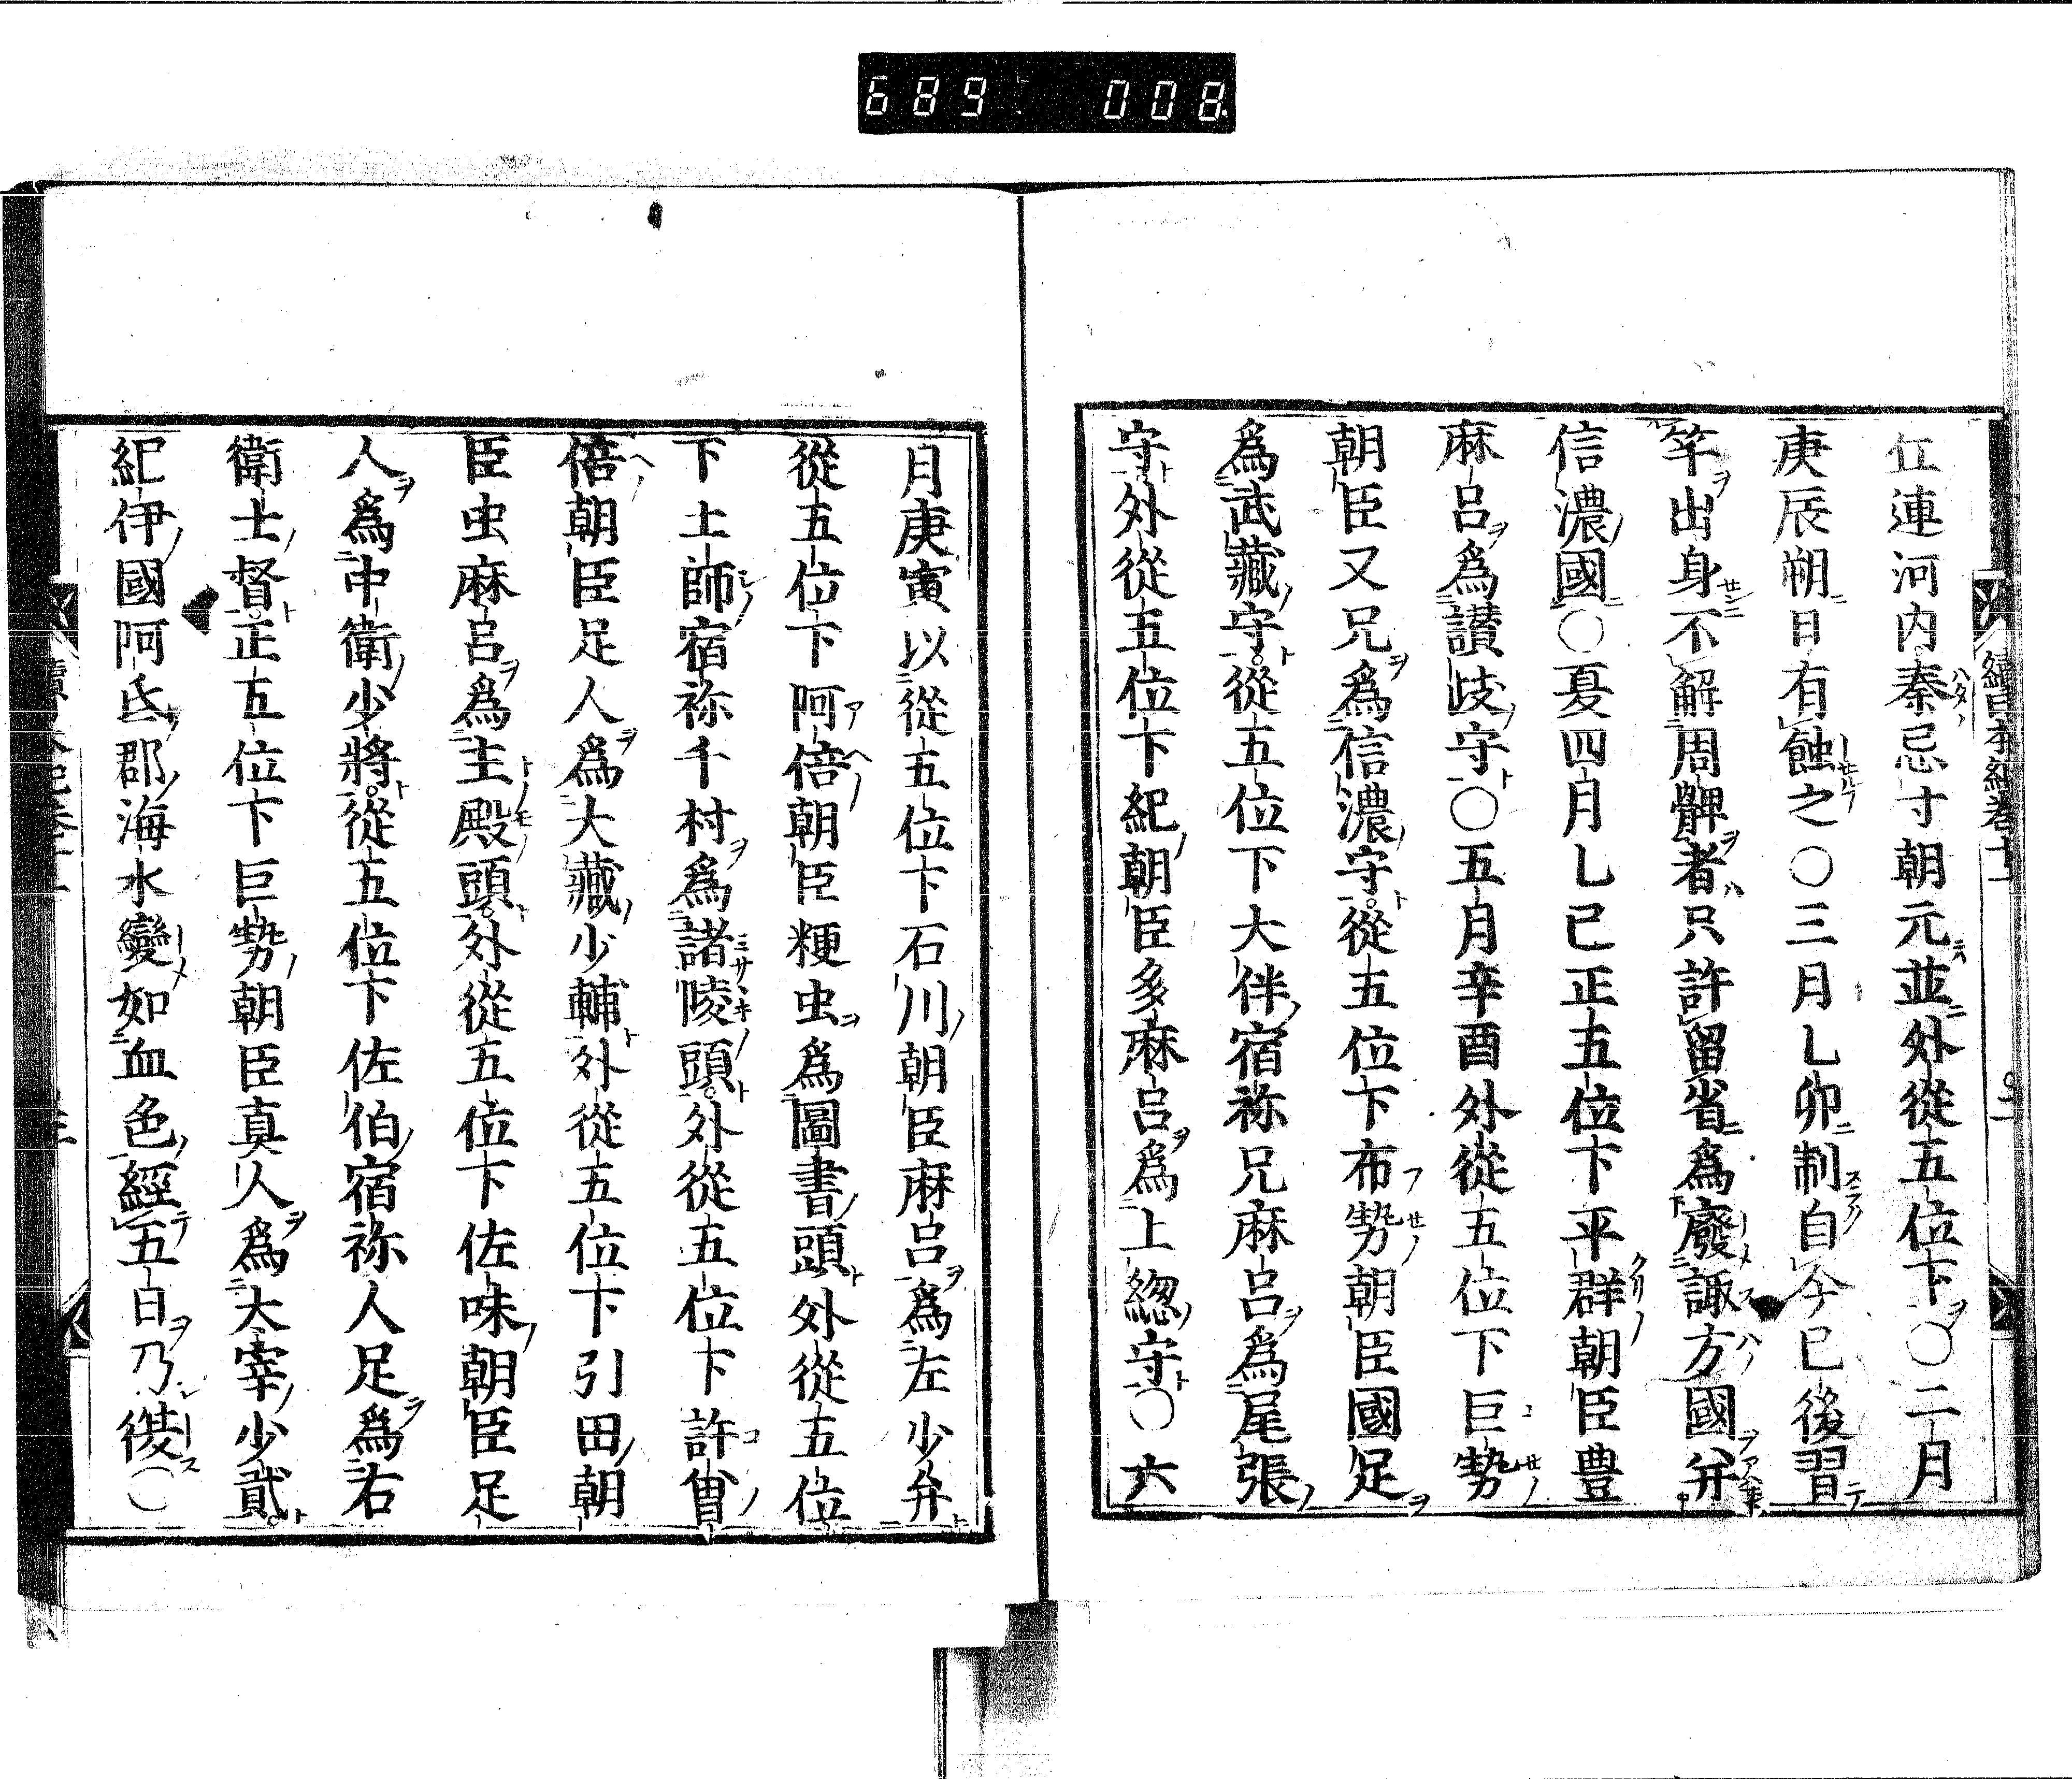 689 008
續日本紀卷十一
江連河内秦忌寸朝元並外從五位下〇二月
庚辰朔日有蝕之〇三月乙卯制自今已後習
竿出身不解周髀者只許留省爲廢諏方國并
信濃國〇夏四月乙已正五位下平群朝臣豊
麻呂爲讃歧守〇五月辛酉外從五位下巨勢
朝臣又兄爲信濃守從五位下布勢朝臣國足
爲武藏守從五位下大伴宿祢兄麻呂爲尾張
守外從五位下紀朝臣多麻呂爲上緫守〇六
月庚寅以從五位下石川朝臣麻呂爲左少弁
從五位下阿倍朝臣粳虫爲圖書頭外從五位
下土師宿祢千村爲諸陵頭外從五位下許曽
倍朝臣足人爲大藏少輔外從五位下引田朝
臣虫麻呂爲主殿頭外從五位下佐味朝臣足
人爲中衛少將從五位下佐伯宿祢人足爲右
衛士督正五位下巨勢朝臣真人爲大宰少貳
紀伊國阿氐郡海水變如血色經五日乃復〇